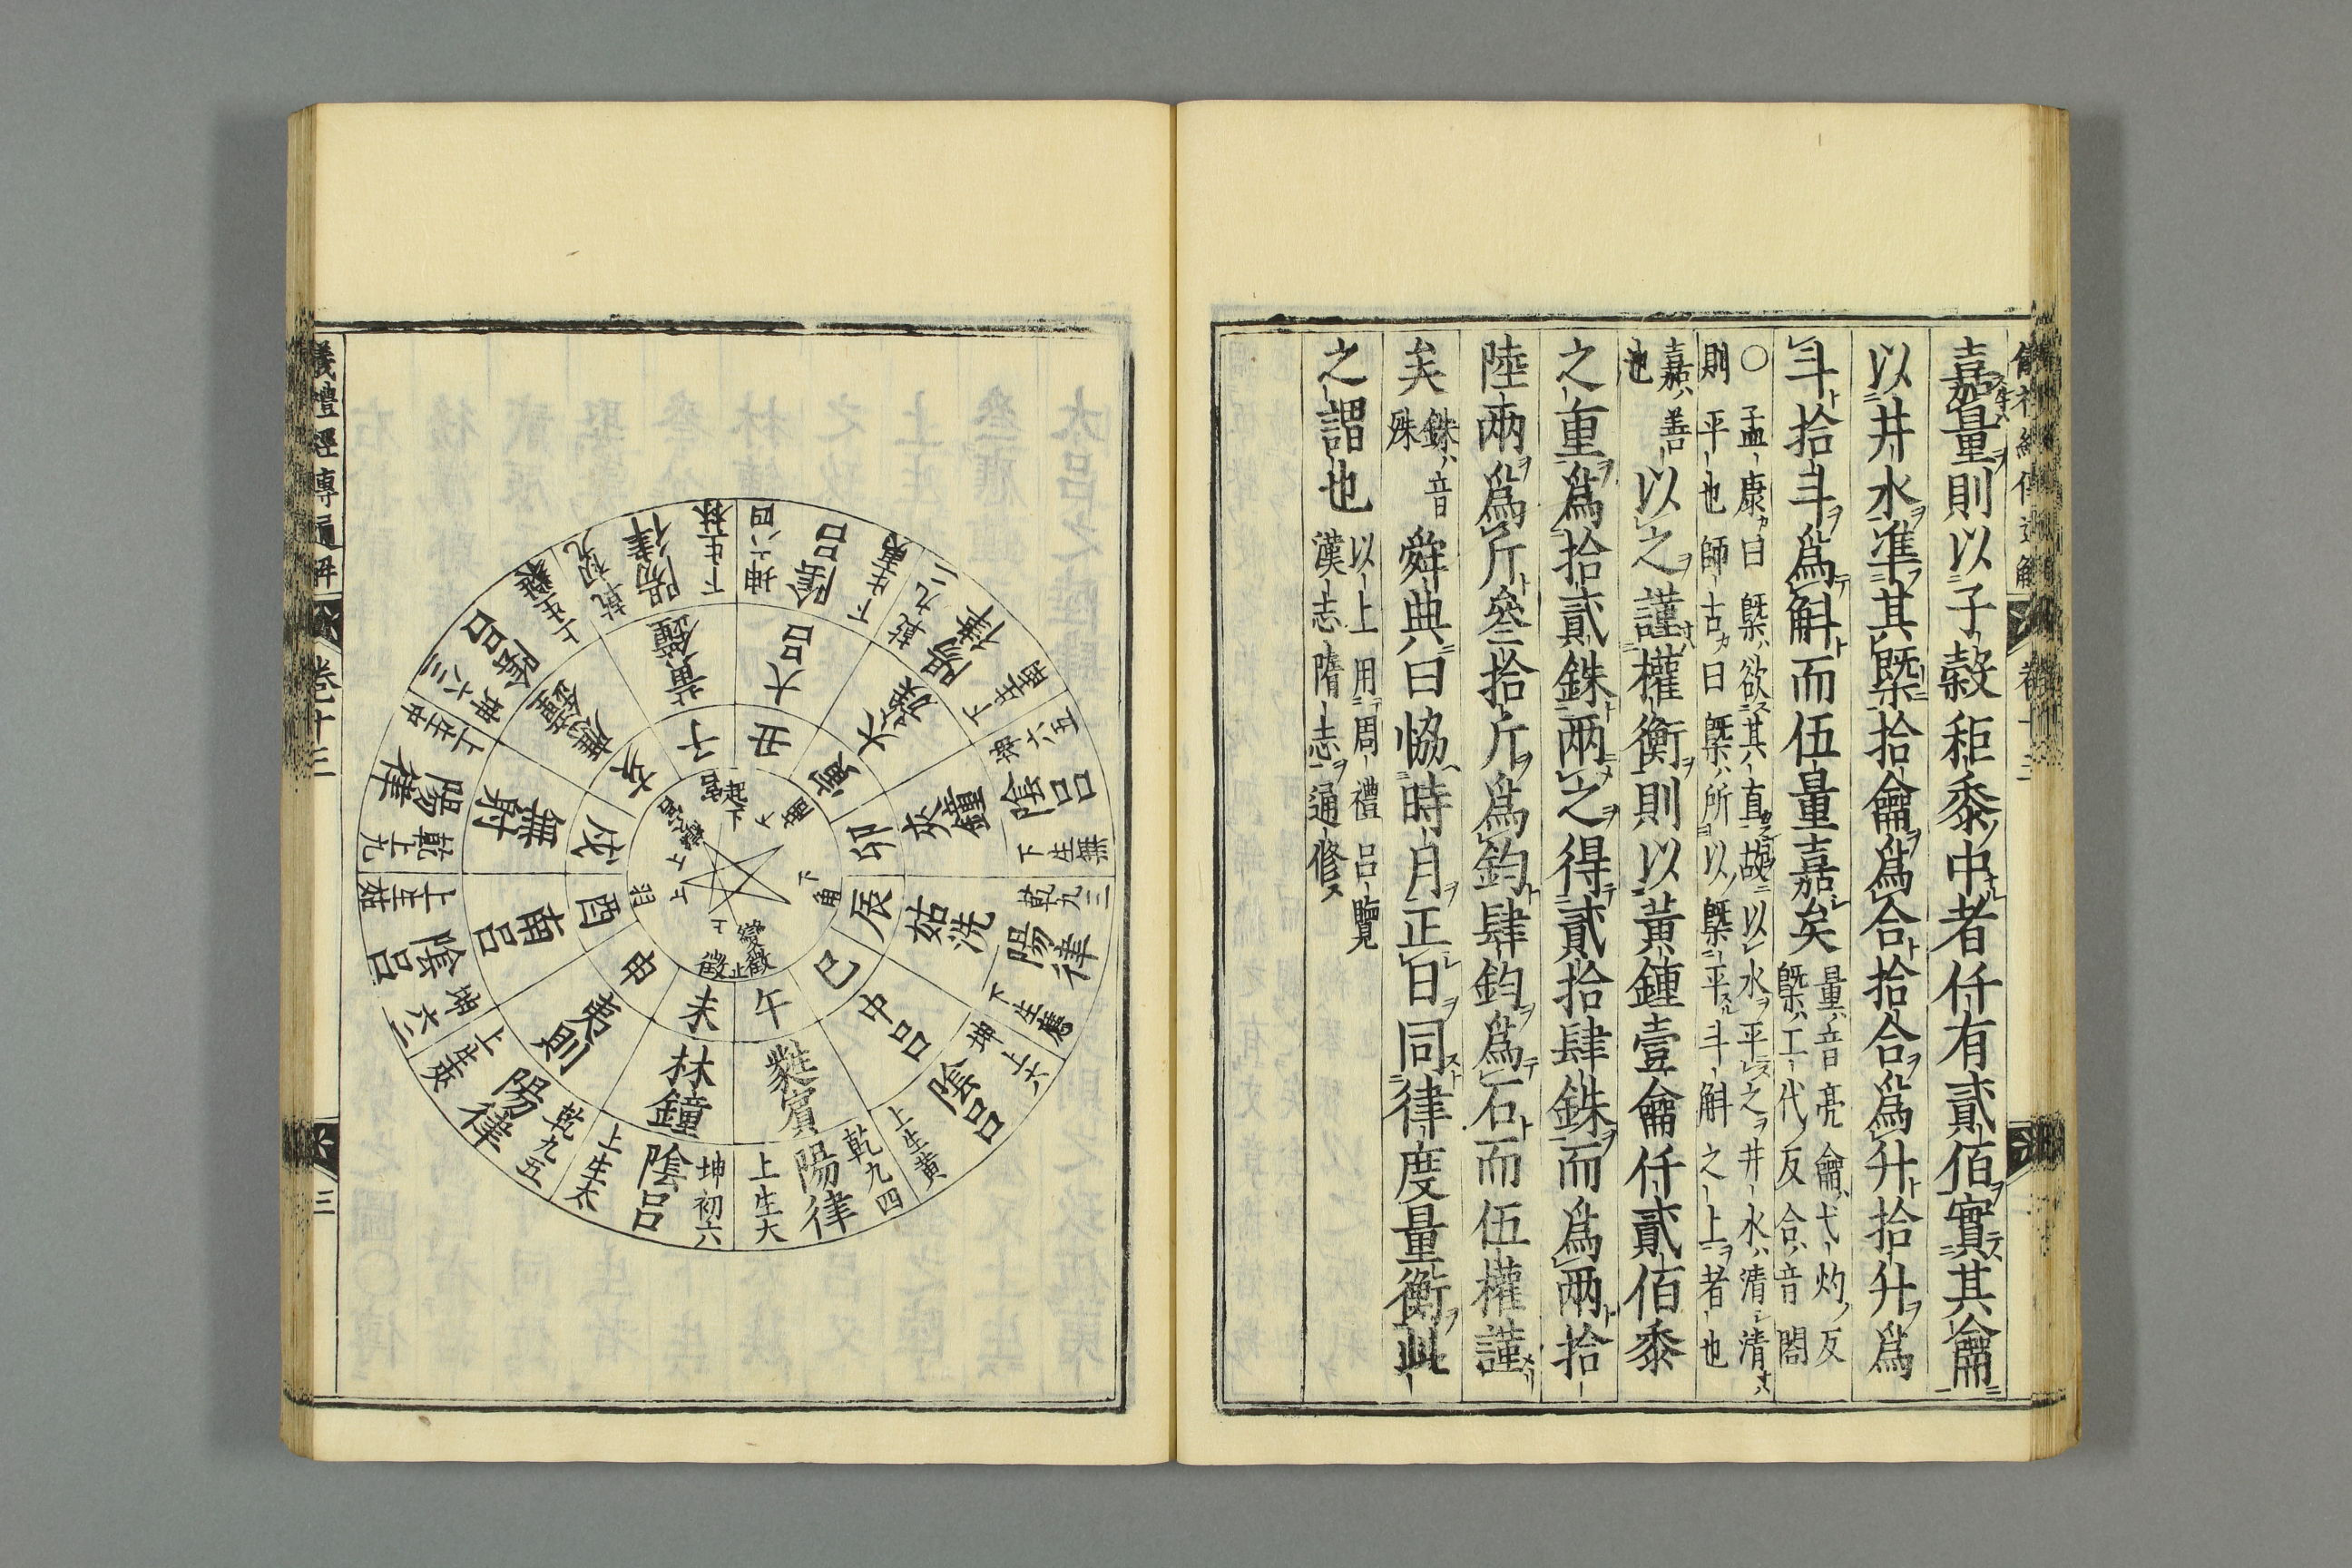 嘉量則以子穀秬黍中者仟有貳佰實其龠
以井水準其槩拾龠爲合拾合爲升拾升爲
斗拾斗爲斛而伍量嘉矣
量音亮龠弋灼反
槩工代反合音閤
○孟康曰槩欲其直故以水平之井水清清
則平也師古曰槩所以槩平斗斛之上者也
嘉善
也
以之謹權衡則以黃鍾壹龠仟貳佰黍
之重爲拾貳銖兩之得貳拾肆銖而爲兩拾
陸兩爲斤叄拾斤爲鈞肆鈞爲石而伍權謹
矣
銖音
殊
舜典曰協時月正日同律度量衡此
之謂也
以上用周禮呂覽
漢志隋志通修
儀禮經傳通解
卷十三
三
子
黃鍾
陽律
乾初九
下生林
丑
大呂
陰呂
坤六四
下生夷
寅
太蔟
陽律
乾九二
下生南
卯
夾鐘
陰呂
坤六五
下生無
辰
姑洗
陽律
乾九三
下生應
巳
中呂
陰呂
坤上六
上生黃
午
蕤賓
陽律
乾九四
上生大
未
林鐘
陰呂
坤初六
上生太
申
夷則
陽律
乾九五
上生夾
酉
南呂
陰呂
坤六二
上生姑
戌
無射
陽律
乾上九
上生中
亥
應鐘
陰呂
坤六三
上生蕤
宮
起
下
商
下
角
下
變徵
止
徵
上
羽
上
變宮
上